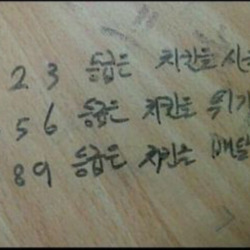 2 3 등급은 치킨을 시
5 6 등급은 치킨을 튀기
8 9 등급은 치킨을 배달